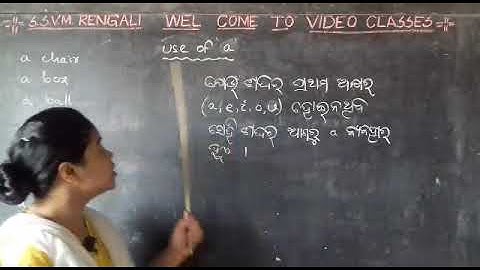 =11= S.S.V.M RENGALI WEL COME TO VIDEO CLASSES =11=
use of "a"
a chair
a box
a ball
ଯେଉଁ ଶବ୍ଦର ପ୍ରଥମ ଅକ୍ଷର
(a, e, i, o, u) ହୋଇନଥିବ
ସେହି ଶବ୍ଦର ଆଗରୁ a ବ୍ୟବହାର
ହୁଏ ।